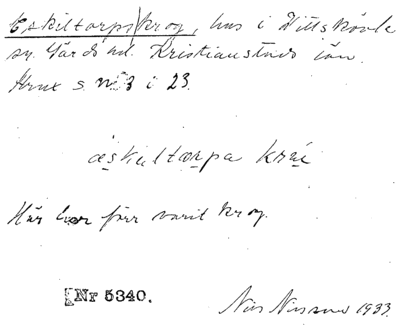 Eskiltorps krog, hus i Vittskövle
sn. Gärds hd. Kristianstads län.
s. nr 3 i 23.
äskiltorpa kräi
Här har förr varit krog.
Nr 5340.
Nils Nilsson 1933.